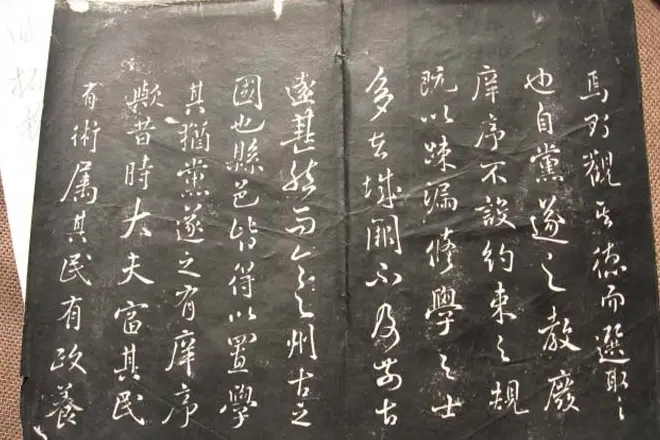 焉觀其德而選取之
也自黨遂之教廢
庠序不設約束之規
既以踈漏修學之士
多在城闕不及前古
遠甚然而今之州古之
國也縣邑皆得以置學
其猶黨遂之有庠序
歟昔時大夫富其民
有術属其民有政養